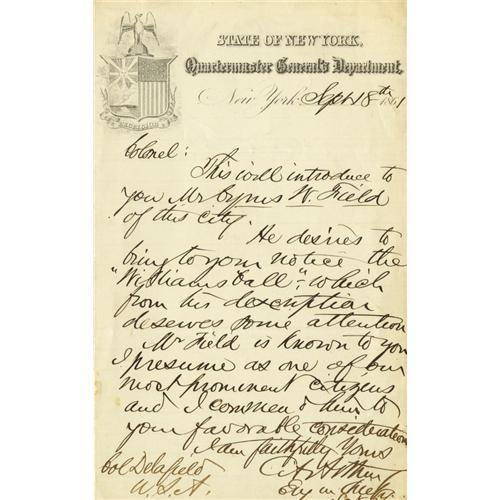 STATE OF NEW YORK,
Quartermaster General's Department,
EXCELSIOR
New York, Sept 18th 1861
Colonel:
This will introduce to
you Mr Cyrus W. Field
of this city.
He desires to
bring to your notice the
"Williams Ball", which
from his description
deserves some attention
Mr Field is known to you
I presume as one of our
most prominent citizens
and I commend him to
your favorable consideration
I am faithfully Yours
C A Arthur
Eng in Chief
Col Delafield
U.S.A.